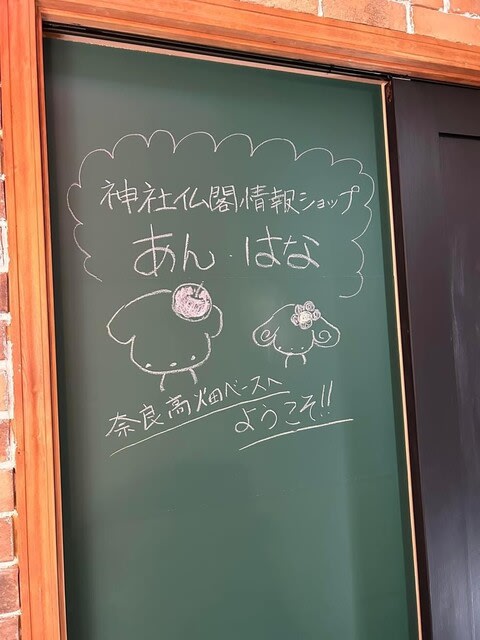 神社仏閣情報ショップ
あん・はな
奈良高畑ベースへ
ようこそ!!